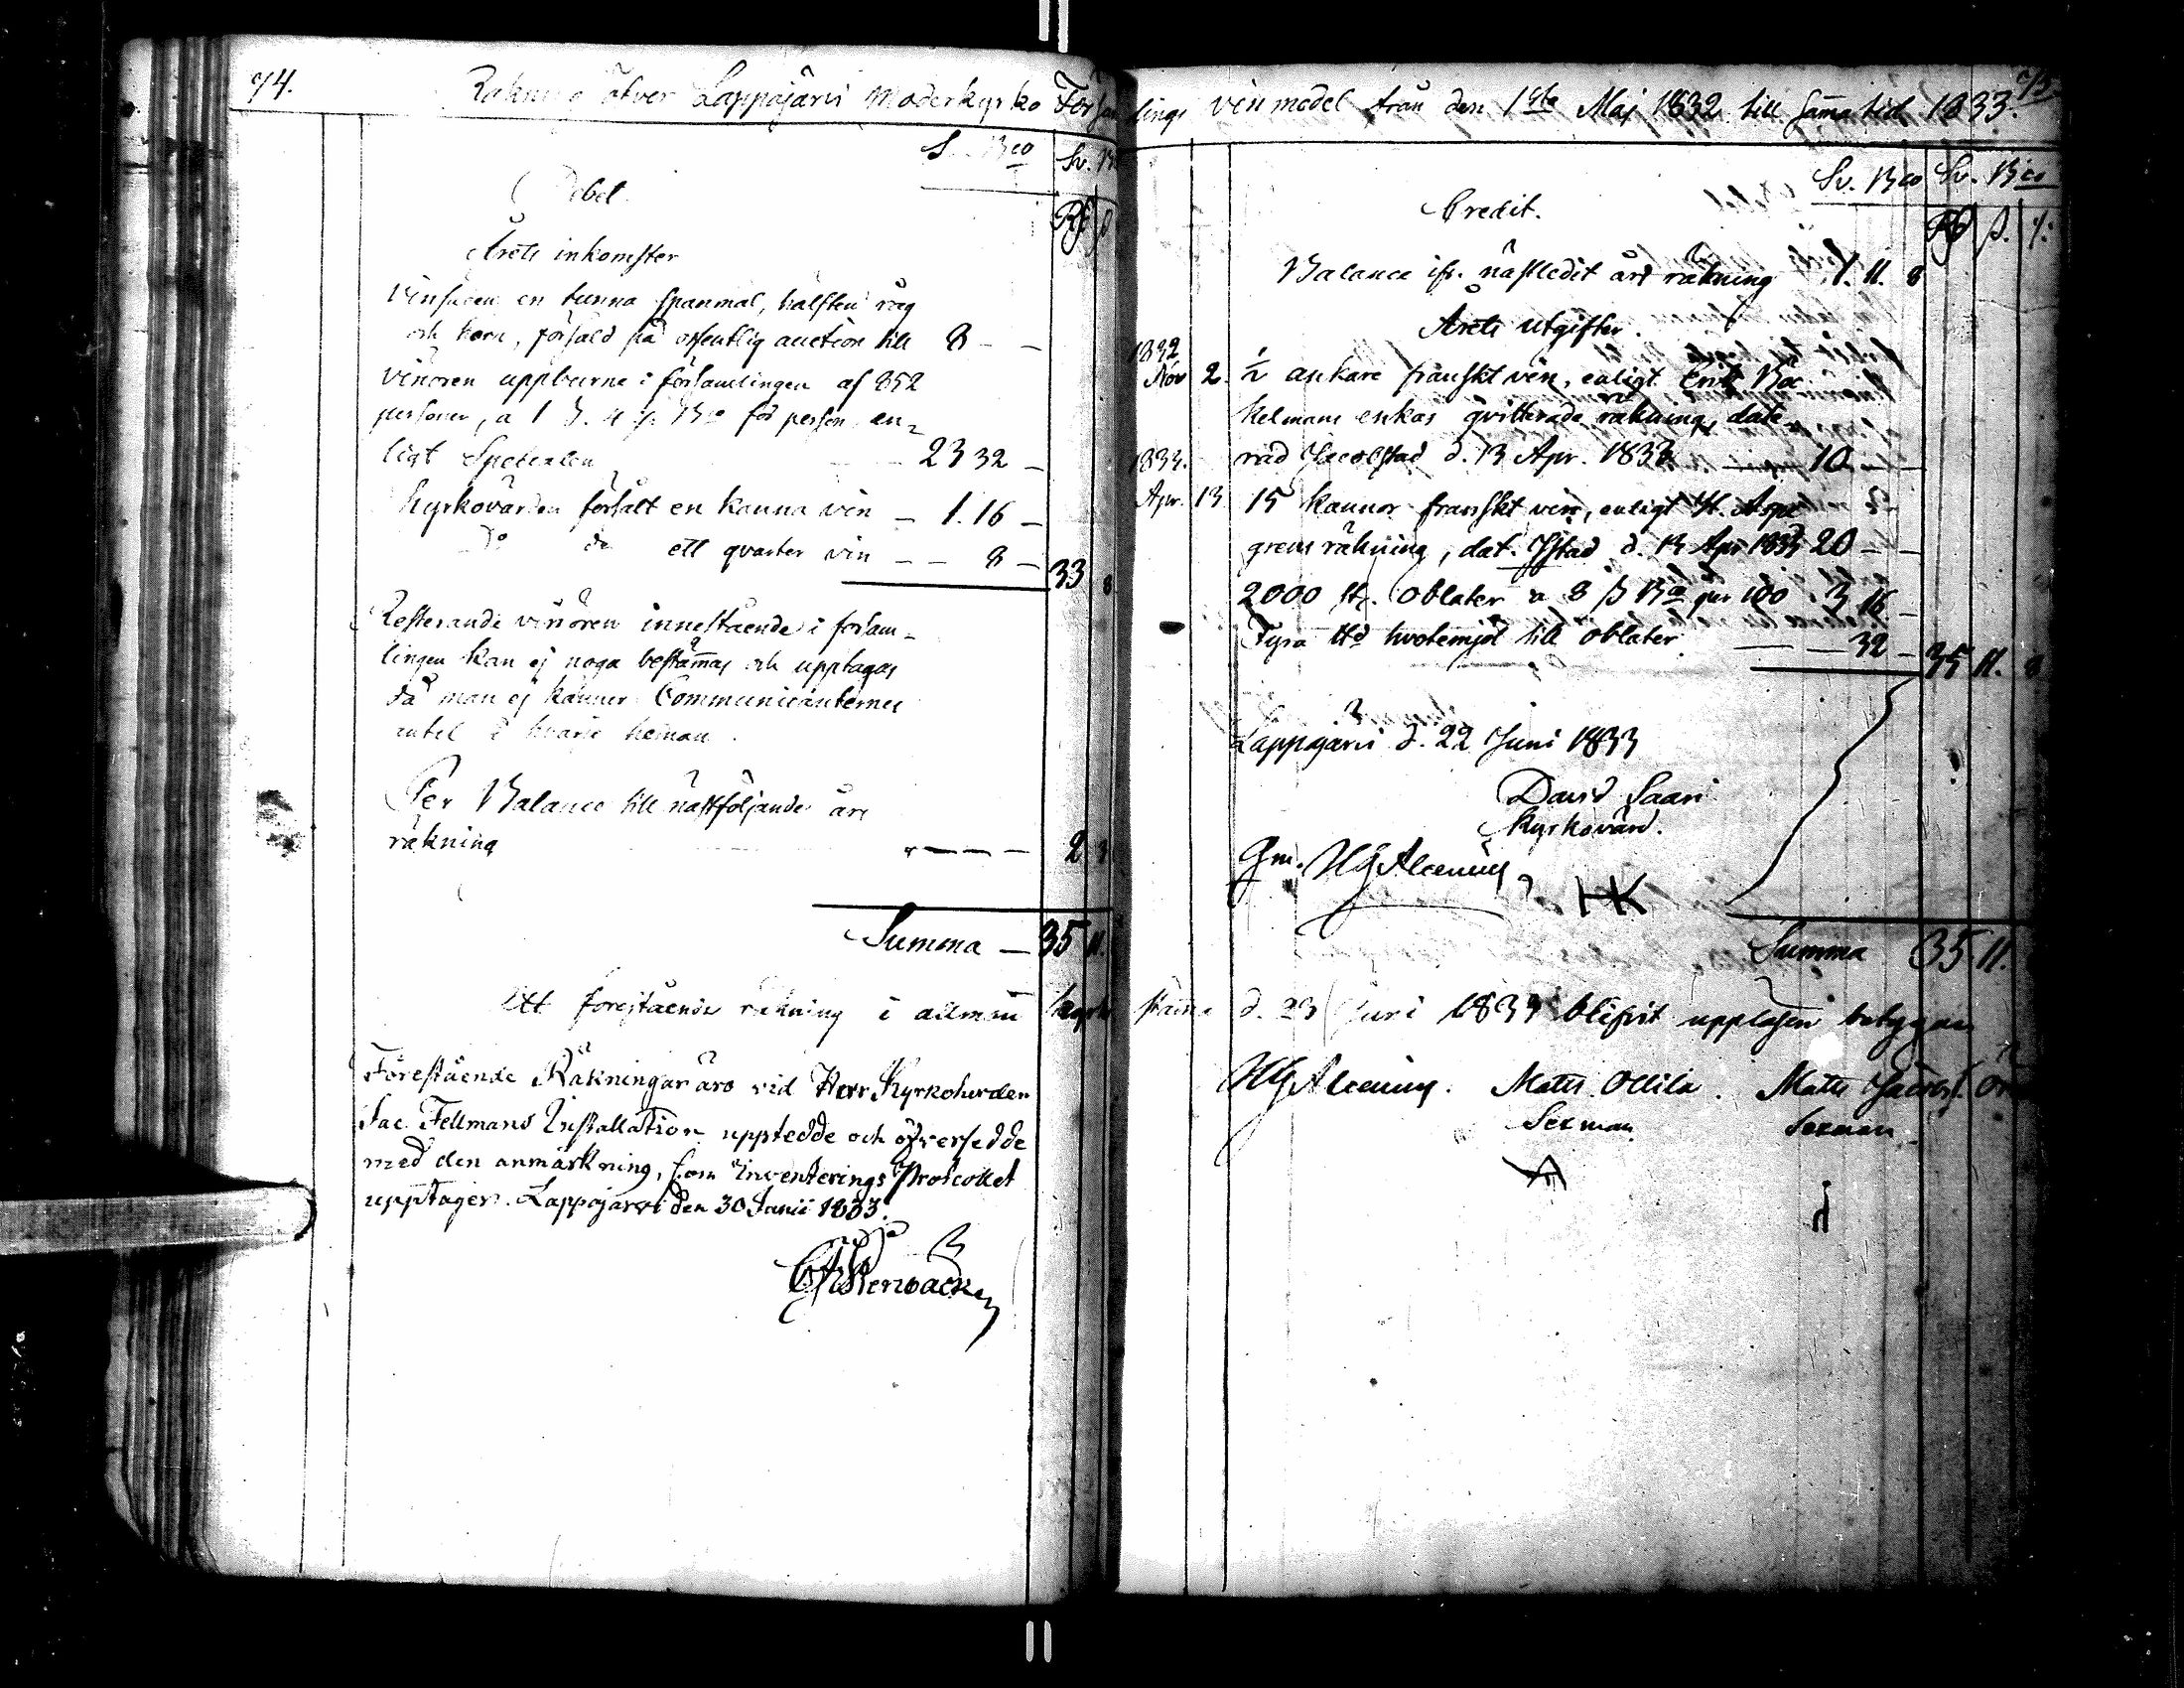 74.
Räkning öfver Lappajärvi Moderkyrko Församlings vinmedel från den 1sta Maj 1832 till sama tid 1833.
75
S. Bco Sv. B
Debet.
Rd ß
Årets inkomster
Vinsäden en tunna spanmål, hälften råg
och korn, försåld på offentlig auction till 8 - -
Vinören uppburne i församlingen af 852
personer, a 1 ß. 4 r. Bco för person, en-
ligt Specialen - - 23 32 -
Kyrkovärden försålt en kanna vin - 1. 16 -
Do do ett qvarter vin - - 8 - 33 8
Resterande vinören innestående i försam-
lingen kan ej noga bestämas och upptagas
då man ej känner Communicanternes
antal i hvarje heman.
Per Balance till nästföljande års
räkning - - - - 2 3
Summa - 35 11.
Sv. Bco Sv. Bco
Credit.
Rd ß. r.
Balance ifr. nästledit års räkning 1. 11. 8
Årets utgifter.
1832
Nov 2. ½ ankare franskt vin, enligt Erik Bac
kelmans enkas qvitterade räkning, date-
1833. rad Jacobstad d. 13 Apr. 1833 - 10 - -
Apr. 13 15 kannor franskt vin, enligt
grens räkning, dat. Jstad d. 13 Apr 1833 20 - -
2000 st. Oblater a 8 ß Bco per 100 3 16 -
Fyra ℔d hvetemjöl till oblater - - 32 - 35 11. 8
Lappajärvi d. 22 Juni 1833
David Saari
Kyrkovärd.
Gm. HG Alcenius
HK
Summa 35 11.
Att förestående räkning i allmän kyrkostäma d. 23 Juni 1833 blifvit uppläsen betygar
HG Alcenius. Matts Ollila. Matts Jacobs.
Sexman. Sexman.
Förestående Räkningar äro vid Herr Kyrkoherden
Jac. Fellmans Installation uppteedde och öfversedde
med den anmärkning, som Inventerings Protocollet
upptager. Lappajärvi den 30 Junii 1833.